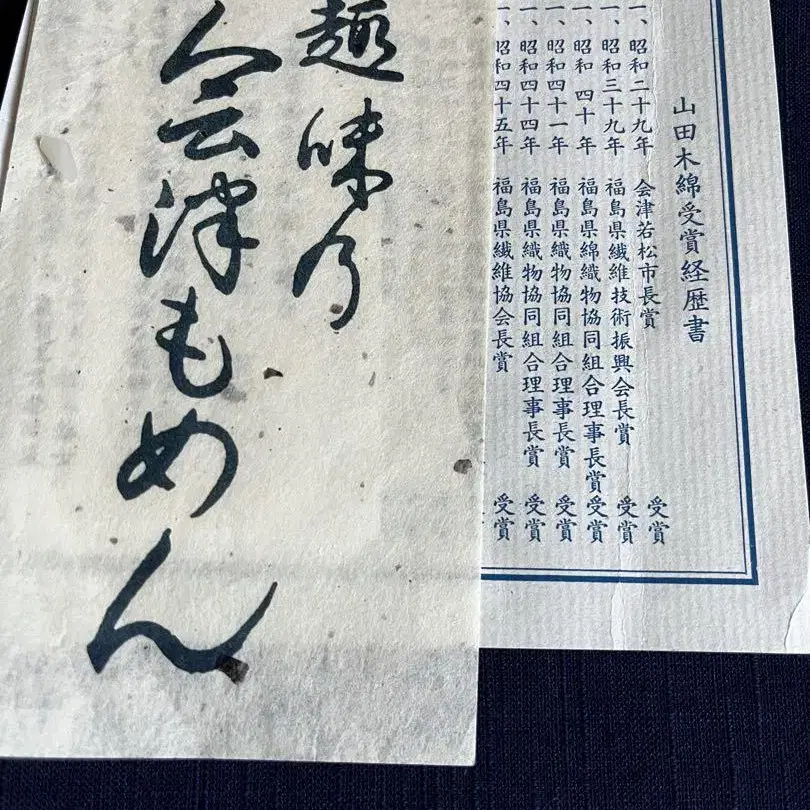 山田木綿受賞経歴書
一、昭和二十九年 会津若松市長賞 受賞
一、昭和三十九年 福島県繊維技術振興会長賞 受賞
一、昭和 四十年 福島県綿織物協同組合理事長賞 受賞
一、昭和四十一年 福島県織物協同組合理事長賞 受賞
一、昭和四十四年 福島県織物協同組合理事長賞 受賞
一、昭和四十五年 福島県繊維協会長賞 受賞
趣味乃
会津もめん